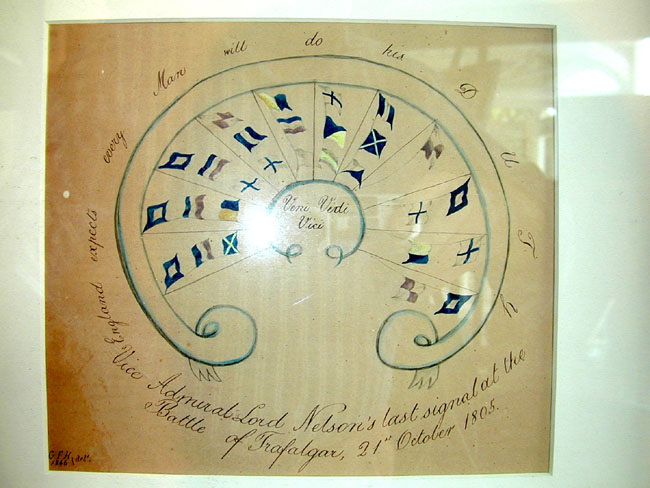 England expects every Man will do his DUTY
Veni Vidi
Vici
Vice Admiral Lord Nelson's last signal at the
Battle of Trafalgar, 21st October 1805.